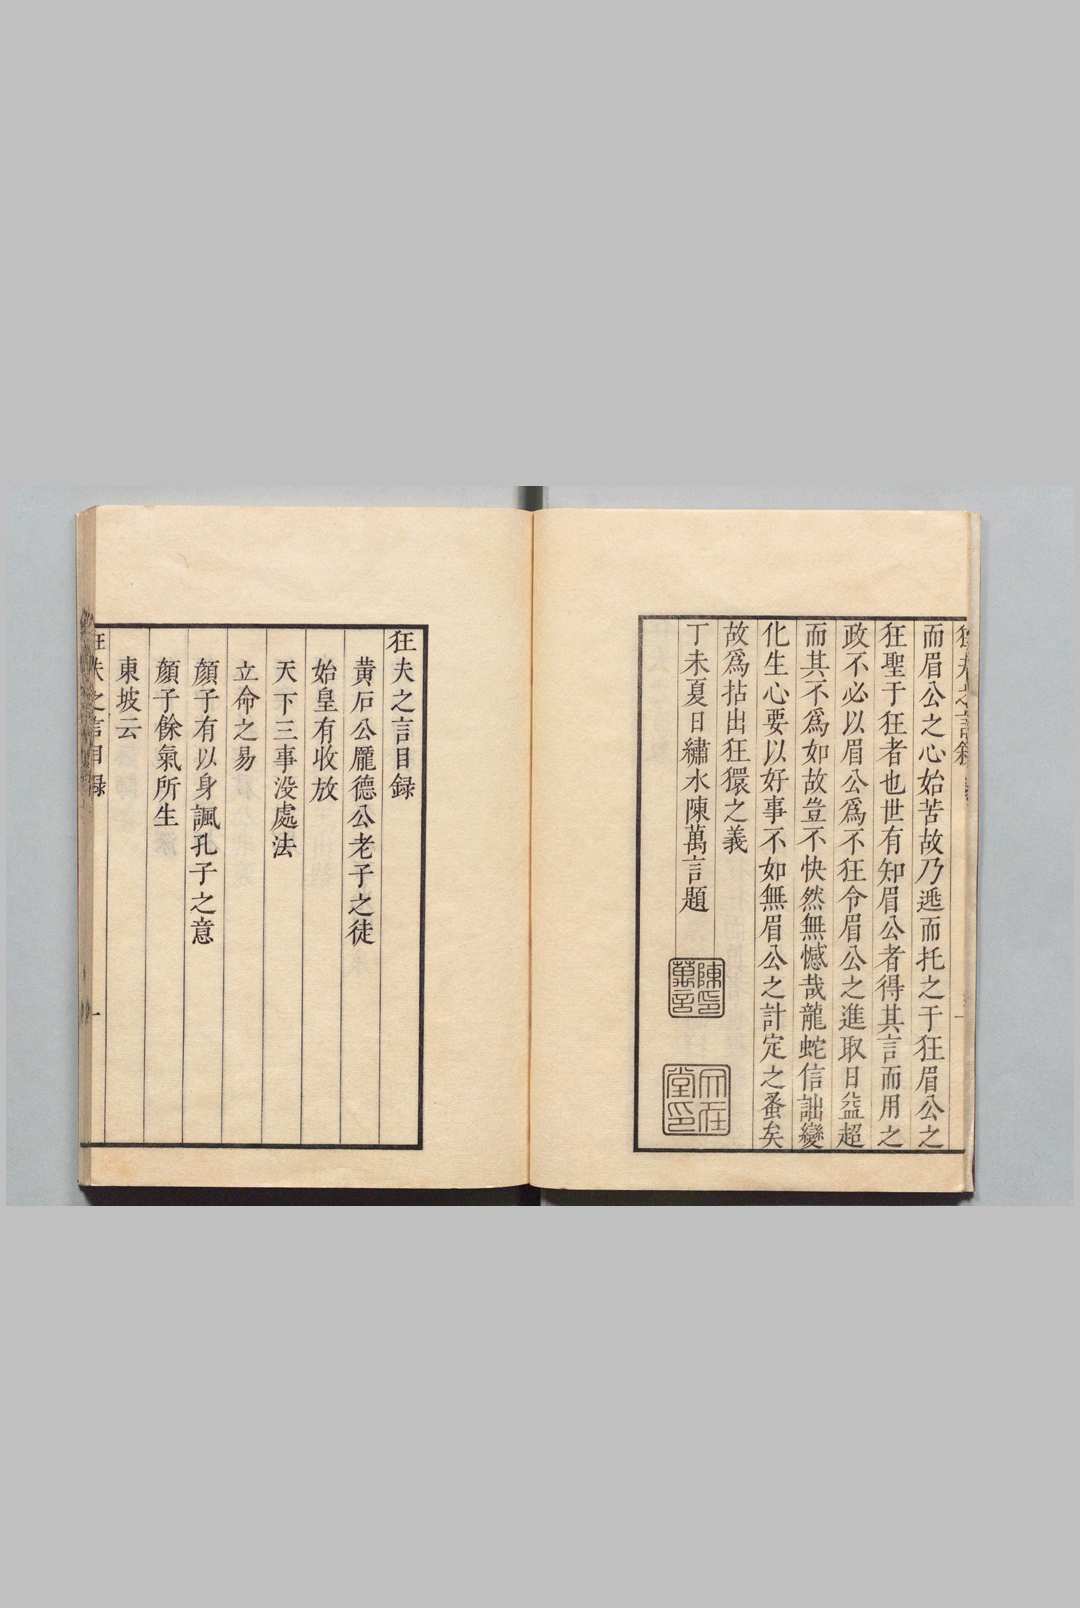 狂夫之言叙
而眉公之心始苦故乃遯而托之于狂眉公之
狂聖于狂者也世有知眉公者得其言而用之
政不必以眉公爲不狂令眉公之進取日益超
而其不爲如故豈不快然無憾哉龍蛇信詘變
化生心要以好事不如無眉公之計定之蚤矣
故爲拈出狂獧之義
丁未夏日繡水陳萬言題
陳萬言印
狂夫之言目録
黄石公龐德公老子之徒
始皇有收放
天下三事没處法
立命之易
顔子有以身諷孔子之意
顔子餘氣所生
東坡云
狂夫之言目録
一